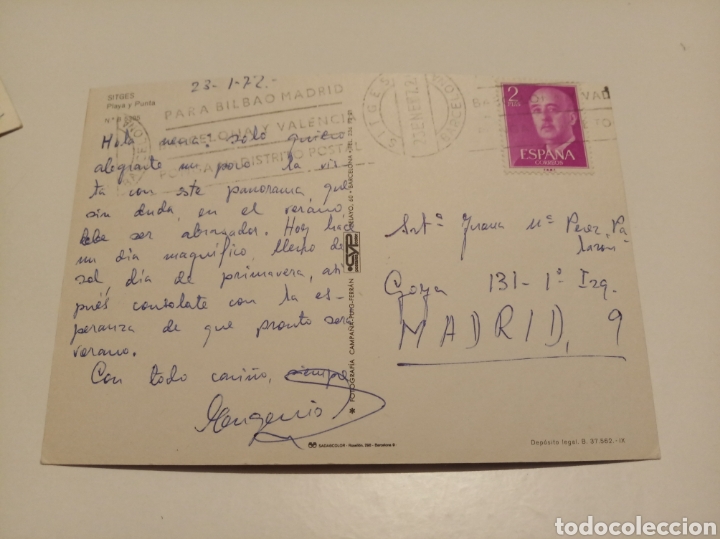 23-1-72.-
SITGES
Playa y Punta
PARA BILBAO MADRID
BARCELONA Y VALENCIA
DISTRITO POSTAL
Hola nena: sólo quiero
alegrarte un poco la vis-
ta con este panorama, que
sin duda, en el verano
debe ser abrasador. Hoy hace
un día magnífico, lleno de
sol, día de primavera, así
pués consolate con la es-
peranza de que pronto será
verano.
Con todo cariño, siempre
SITGES
BARCELONA
2
PTAS
ESPAÑA
CORREOS
Srtª Juana Mª Perez Pa
lazón
Goya 131-1º Izq.
MADRID, 9
FOTOGRAFIA CAMPAÑÁ-PUIG-FERRÁN
CYP
Depósito legal. B. 37.562.-IX
todocoleccion